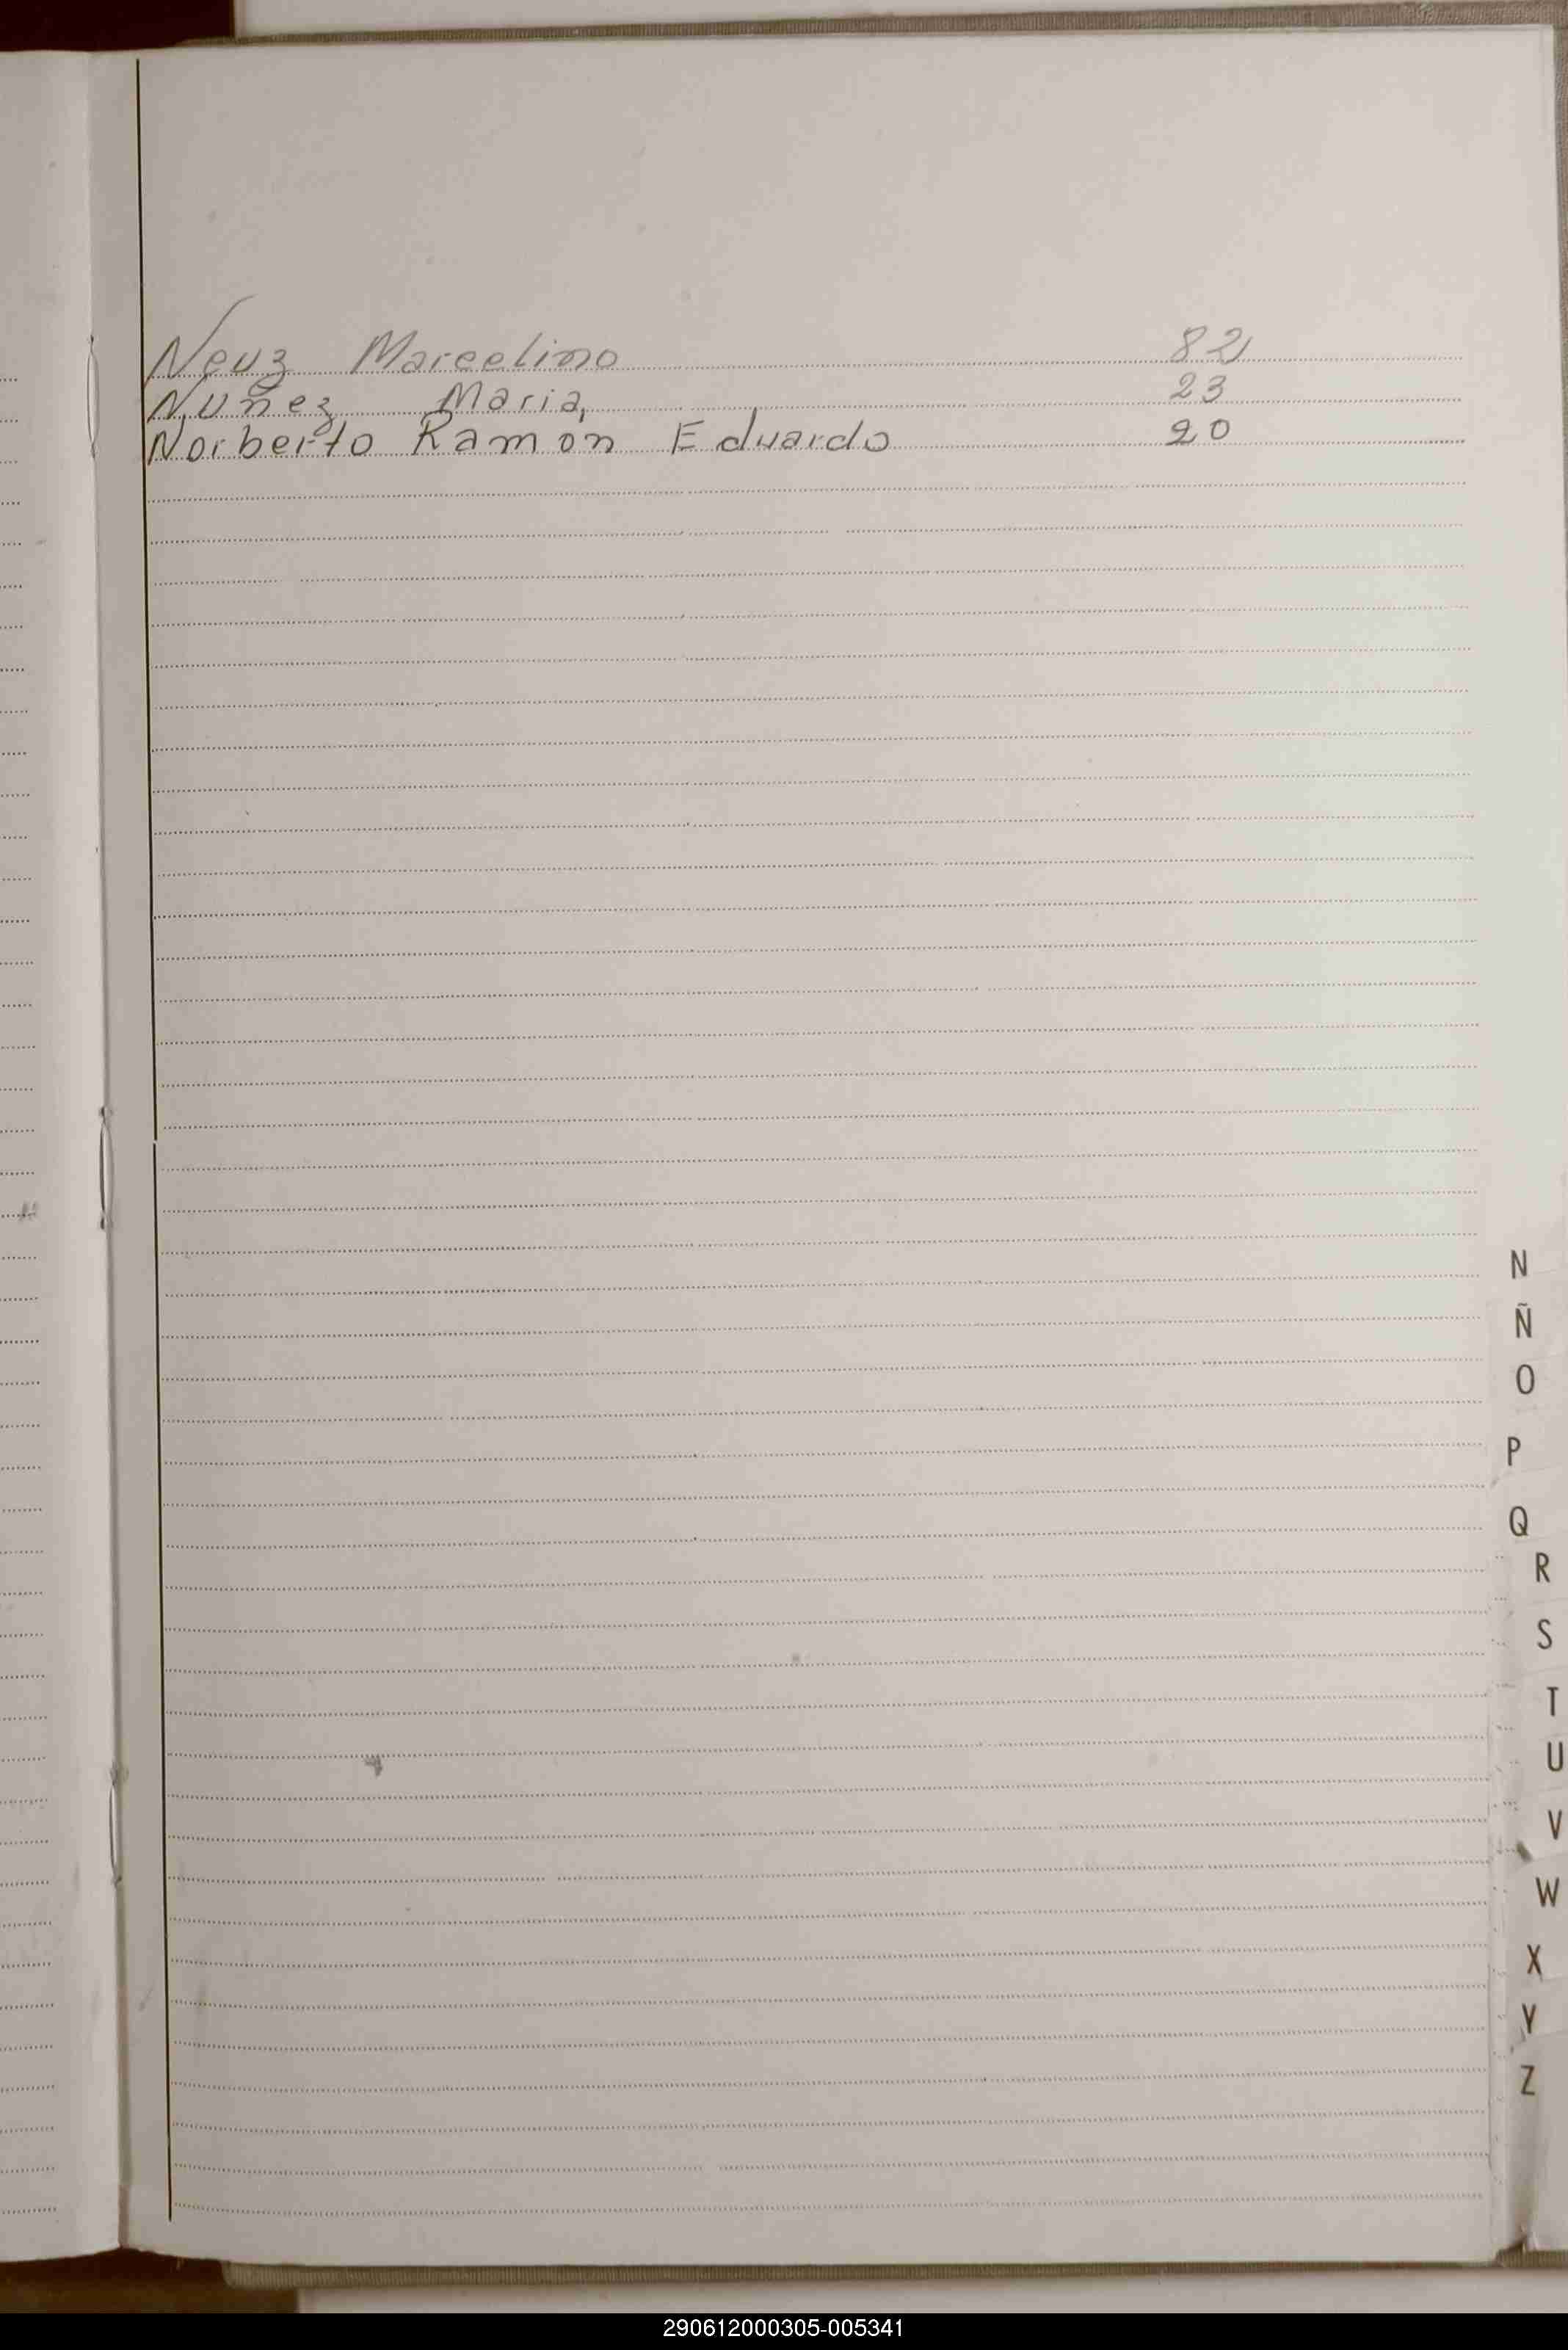 Neuz Marcelino 82
Nuñez Maria, 23
Norberto Ramón Eduardo 20
N
Ñ
O
P
Q
R
S
T
U
V
W
X
Y
Z
290612000305-005341